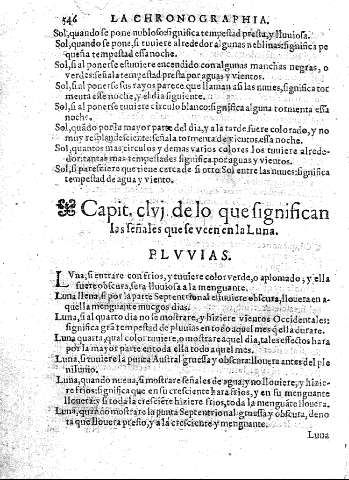 546 LA CHRONOGRAPHIA.
Sol, quando se pone nubloso: significa tempestad presta, y lluuiosa.
Sol, quando se pone, si tuuiere alrededor algunas neblinas: significa pe
queña tempestad essa noche.
Sol, si al ponerse estuuiere encendido con algunas manchas negras, o
verdes: señala tempestad presta por aguas y vientos.
Sol, si al ponerse sus rayos parece que llaman a si las nuues, significa tor
menta esse noche, y el dia siguiente.
Sol, si al ponerse tuuiere circulo blanco: significa alguna tormenta essa
noche.
Sol, quãdo por la mayor parte del dia, y a la tarde fuere colorado, y no
muy resplandesciente: señala tormenta de vientos essa noche.
Sol, quantos mas circulos y demas varios colores los tuuiere alrede-
dor: tantas mas tempestades significa por aguas y vientos.
Sol, si paresciere que tiene cerca de si otto Sol entre las nuues: significa
tempestad de agua y viento.
Capit. clvj. de lo que significan
las señales que se veen en la Luna.
PLVVIAS.
LVna, si entrare con frios, y tuuiere color verde, o aplomado; y ella
fuere obscura, sera lluuiosa a la menguante.
Luna llena, si por la parte Septentrional estuuiere obscura, llouera en a-
quella menguante muchos dias.
Luna, si al quarto dia no se mostrare, y hiziere vientos Occidentales:
significa grã tempestad de pluuias en todo aquel mes q̃ ella durare.
Luna quarta, qual color tuuiere, o mostrare aquel dia, tales effectos hara
por la mayor parte en toda ella todo aquel mes.
Luna, si tuuiere la punta Austral gruessa y obscura: llouera antes del ple
nilunio.
Luna, quando nueua, si mostrare señales de agua, y no llouiere, y hizie-
re frios: significa que en su cresciente hara frios, y en su menguante
llouera: y si toda la cresciẽte hiziere frios, toda la menguãte llouera.
Luna, quãdo mostrare la punta Septentrional gruessa y obscura, deno
ta que llouera presto, y a la cresciente y menguante.
Luna